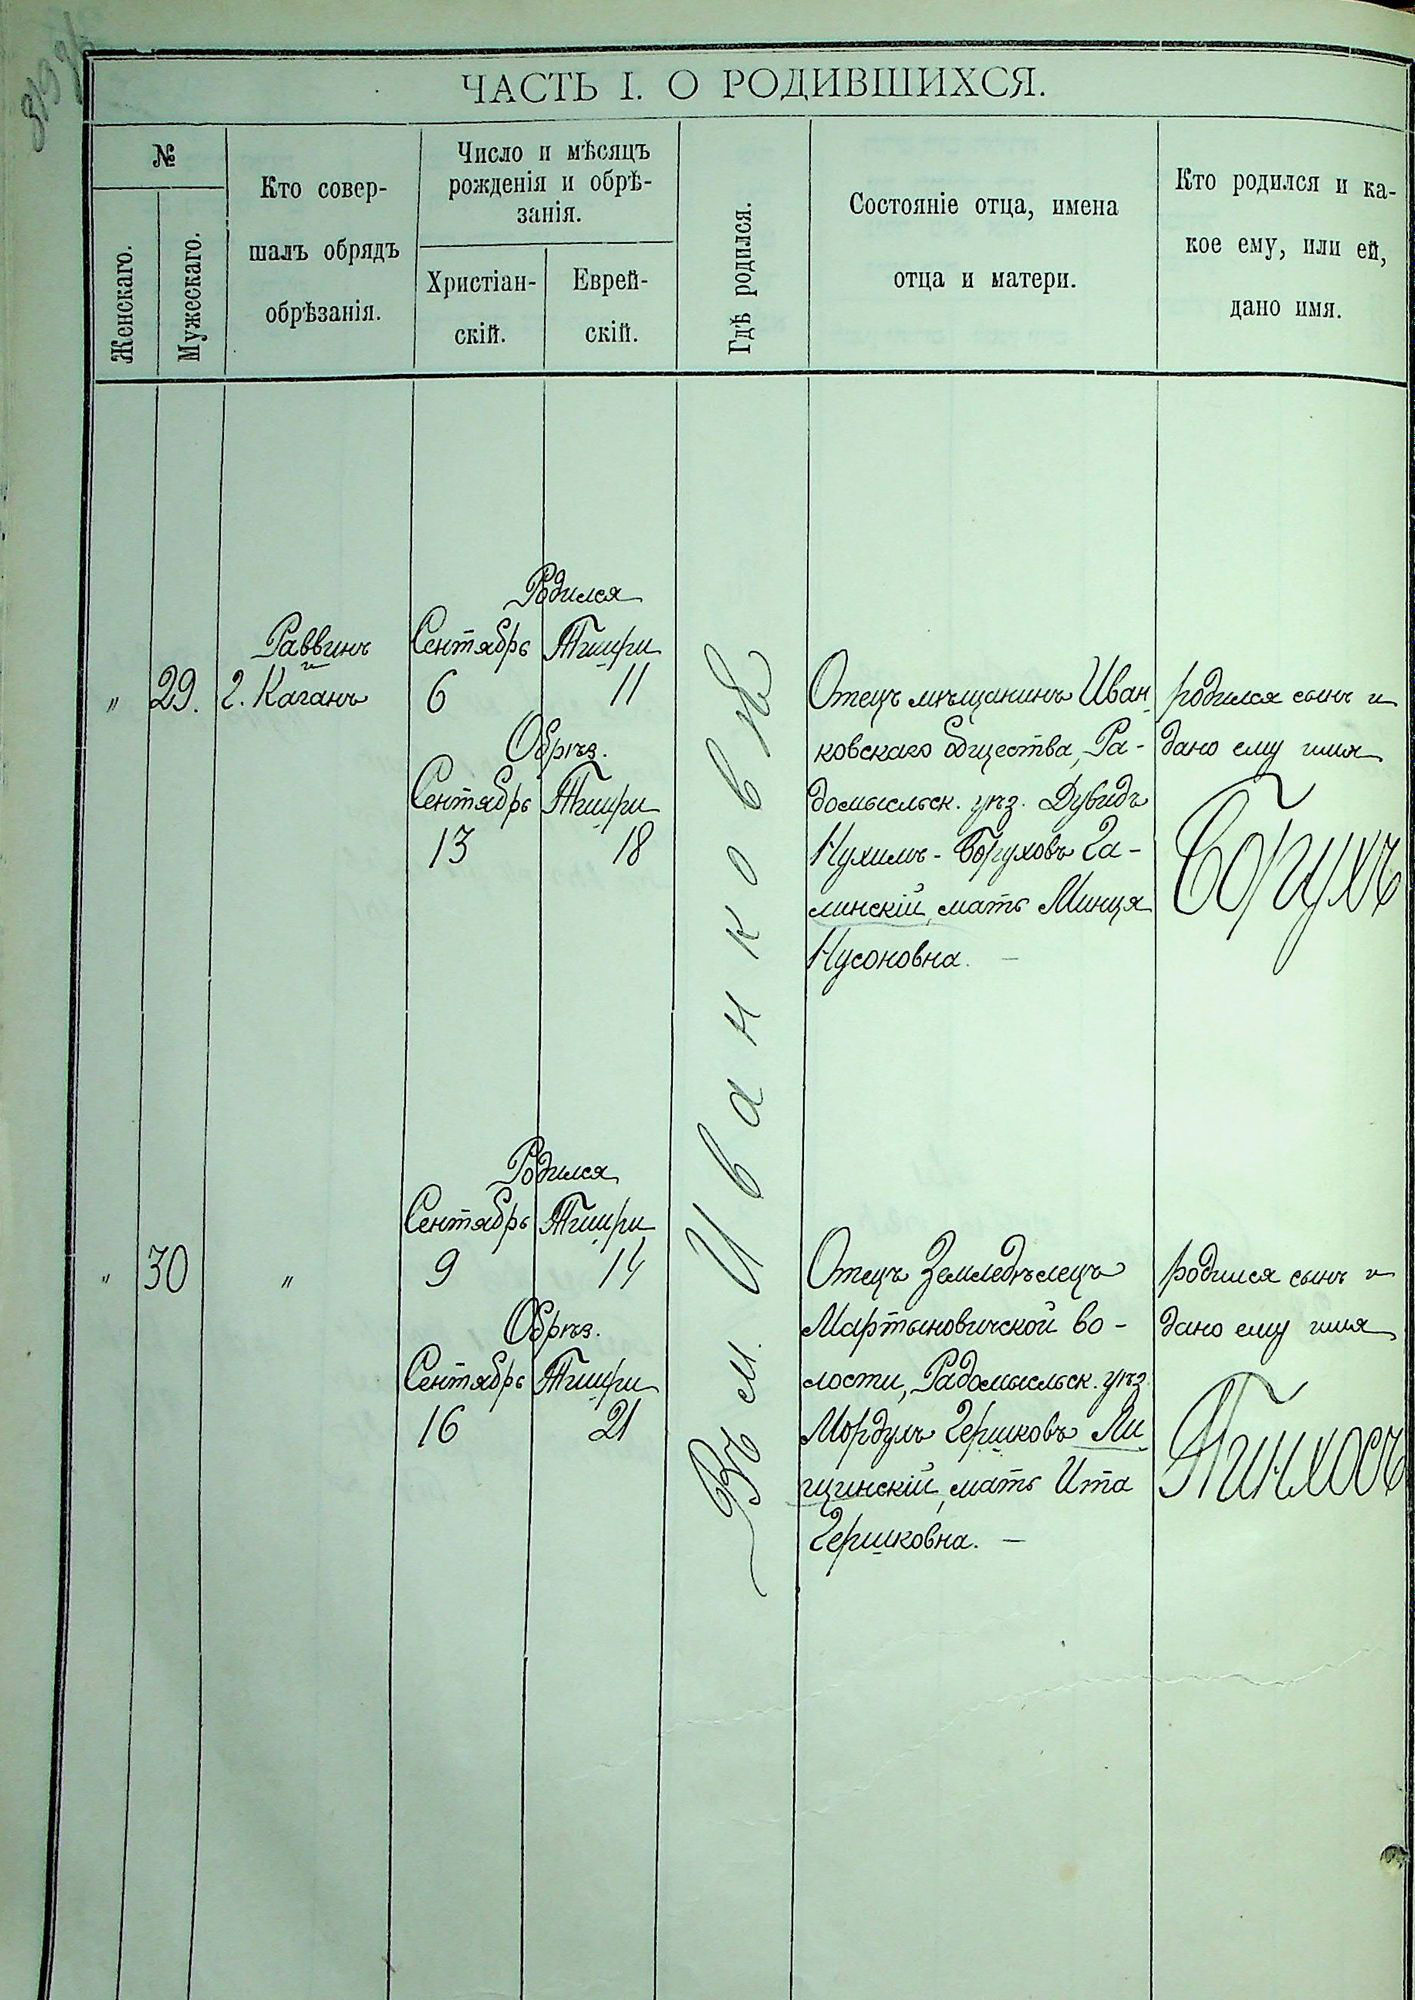 ЧАСТЬ I. О РОДИВШИХСЯ.
№
Женскаго.
Мужескаго.
Кто совер-
шалъ обрядъ
обрѣзанія.
Число и мѣсяцъ
рожденія и обрѣ-
занія.
Христіан-
скій.
Еврей-
скій.
Гдѣ родился.
Состояніе отца, имена
отца и матери.
Кто родился и ка-
кое ему, или ей,
дано имя.
Въ м. Иванковѣ
" 29.
Раввинъ
и
г. Каганъ
Родился
Сентябрь Тишри
6 11
Обрѣз.
Сентябрь Тишри
13 18
Отецъ мѣщанинъ Иван-
ковскаго общества, Ра-
домысльск. уѣз. Дувидъ
Нухимъ-Боруховъ Га-
линскій, мать Минця
Нусоновна. —
родился сынъ и
дано ему имя
Борухъ
" 30
"
Родился
Сентябрь Тишри
9 14
Обрѣз.
Сентябрь Тишри
16 21
Отецъ Земледѣлецъ
Мартыновичской во-
лости, Радомысльск. уѣз.
Мордулъ Гершковъ Ли-
щинскій, мать Ита
Гершковна. —
родился сынъ и
дано ему имя
Пинхосъ